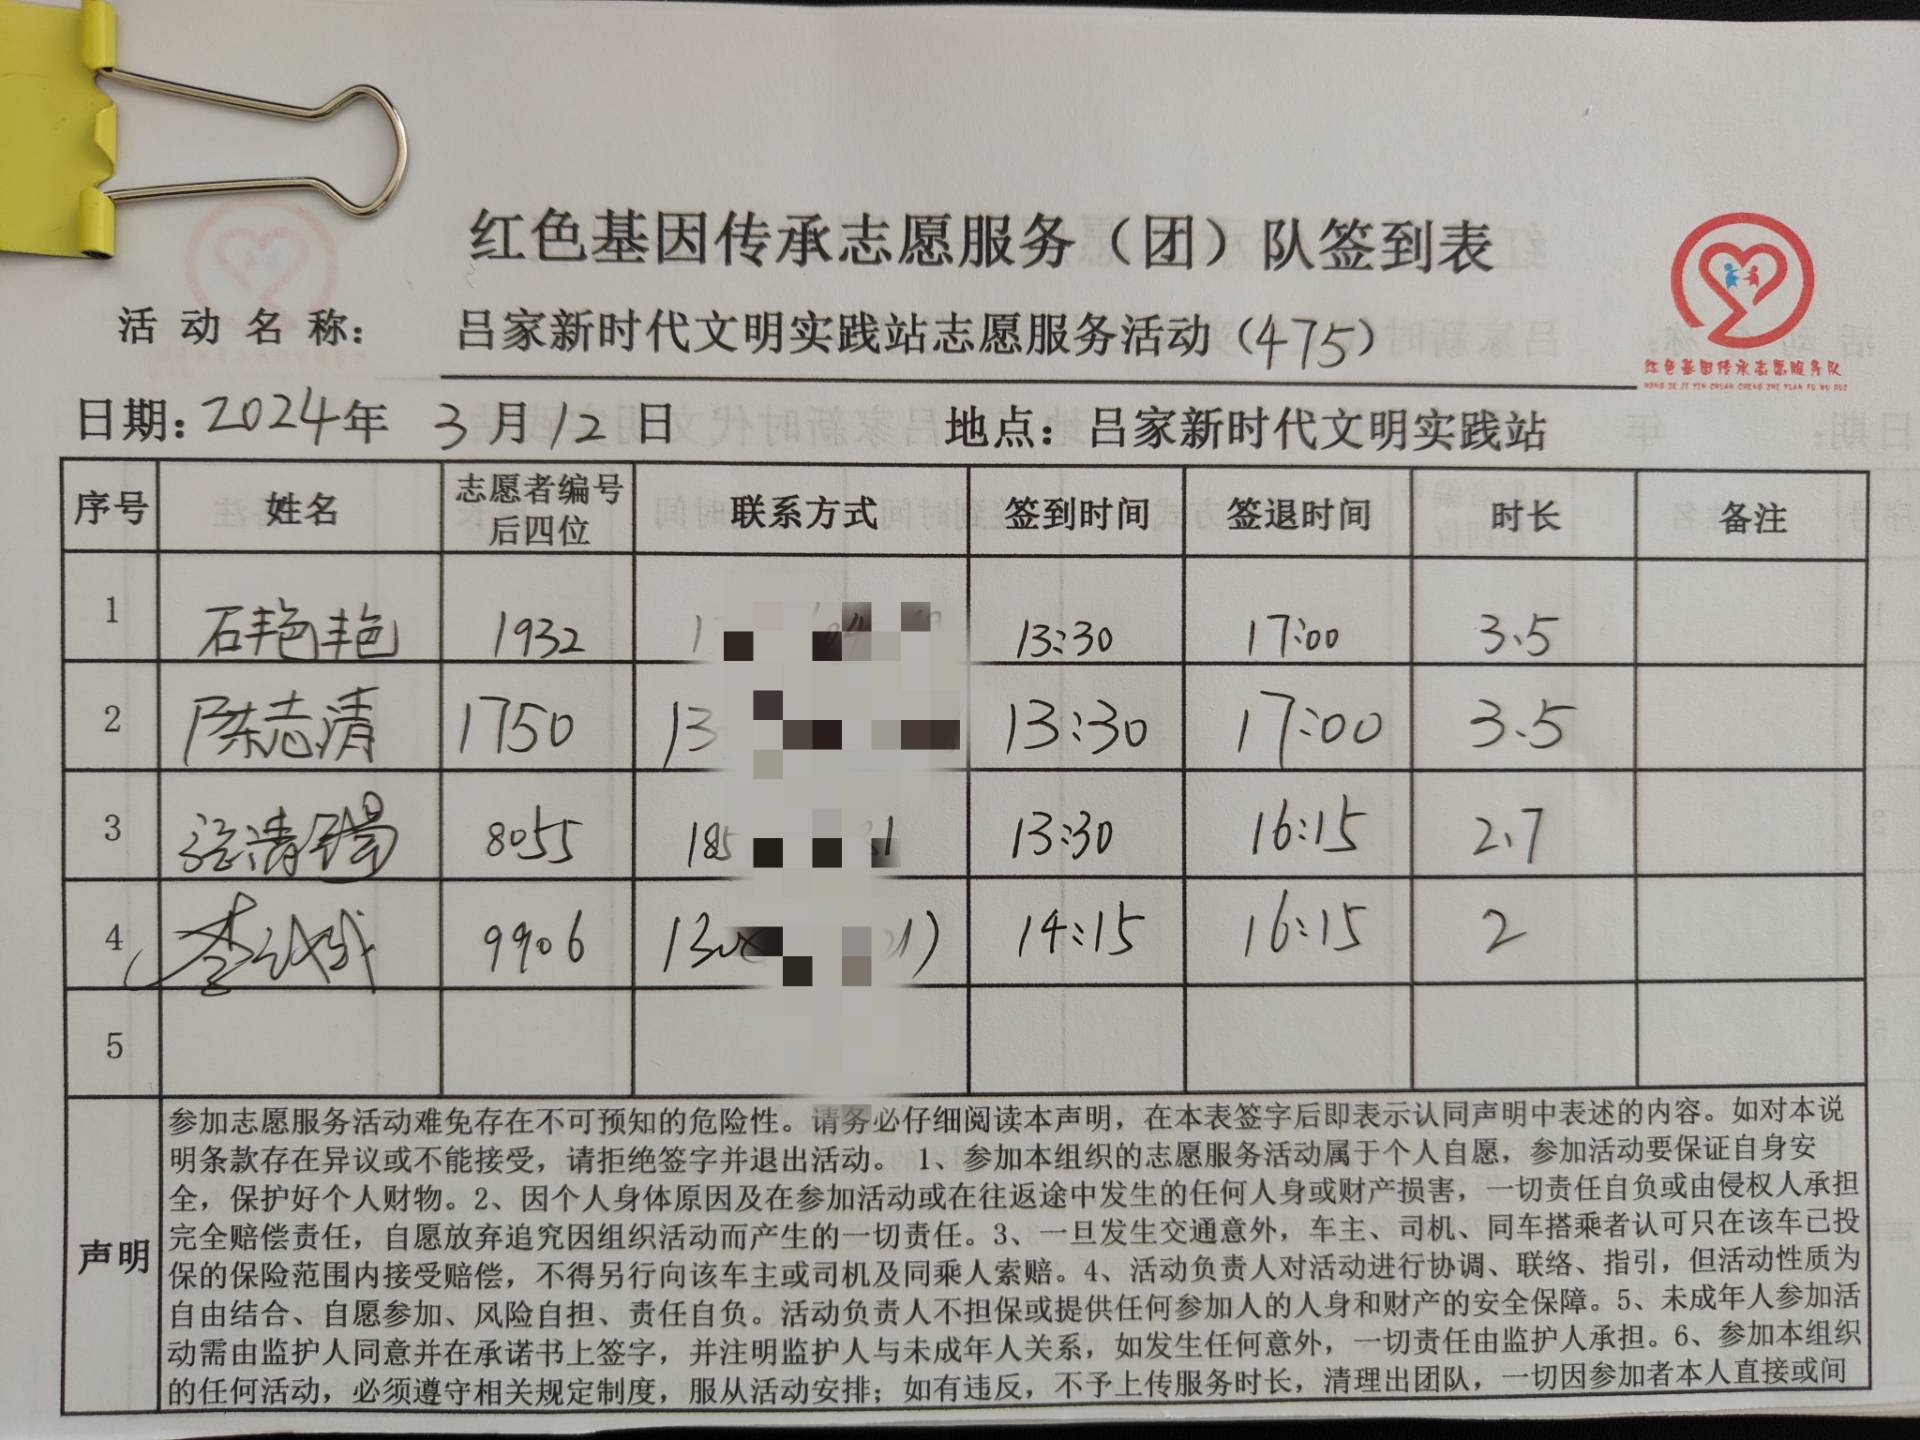 红色基因传承志愿服务（团）队签到表
活动名称： 吕家新时代文明实践站志愿服务活动（475）
红色基因传承志愿服务队
HONG SE JI YIN CHUAN CHENG ZHI YUAN FU WU DUI
日期：2024年 3月12日 地点：吕家新时代文明实践站
序号 姓名 志愿者编号后四位 联系方式 签到时间 签退时间 时长 备注
1 石艳艳 1932 13:30 17:00 3.5
2 陈志清 1750 13 13:30 17:00 3.5
3 8055 185 13:30 16:15 2.7
4 9906 130 14:15 16:15 2
5
声明
参加志愿服务活动难免存在不可预知的危险性。请务必仔细阅读本声明，在本表签字后即表示认同声明中表述的内容。如对本说
明条款存在异议或不能接受，请拒绝签字并退出活动。 1、参加本组织的志愿服务活动属于个人自愿，参加活动要保证自身安
全，保护好个人财物。2、因个人身体原因及在参加活动或在往返途中发生的任何人身或财产损害，一切责任自负或由侵权人承担
完全赔偿责任，自愿放弃追究因组织活动而产生的一切责任。3、一旦发生交通意外，车主、司机、同车搭乘者认可只在该车已投
保的保险范围内接受赔偿，不得另行向该车主或司机及同乘人索赔。4、活动负责人对活动进行协调、联络、指引，但活动性质为
自由结合、自愿参加、风险自担、责任自负。活动负责人不担保或提供任何参加人的人身和财产的安全保障。5、未成年人参加活
动需由监护人同意并在承诺书上签字，并注明监护人与未成年人关系，如发生任何意外，一切责任由监护人承担。6、参加本组织
的任何活动，必须遵守相关规定制度，服从活动安排；如有违反，不予上传服务时长，清理出团队，一切因参加者本人直接或间